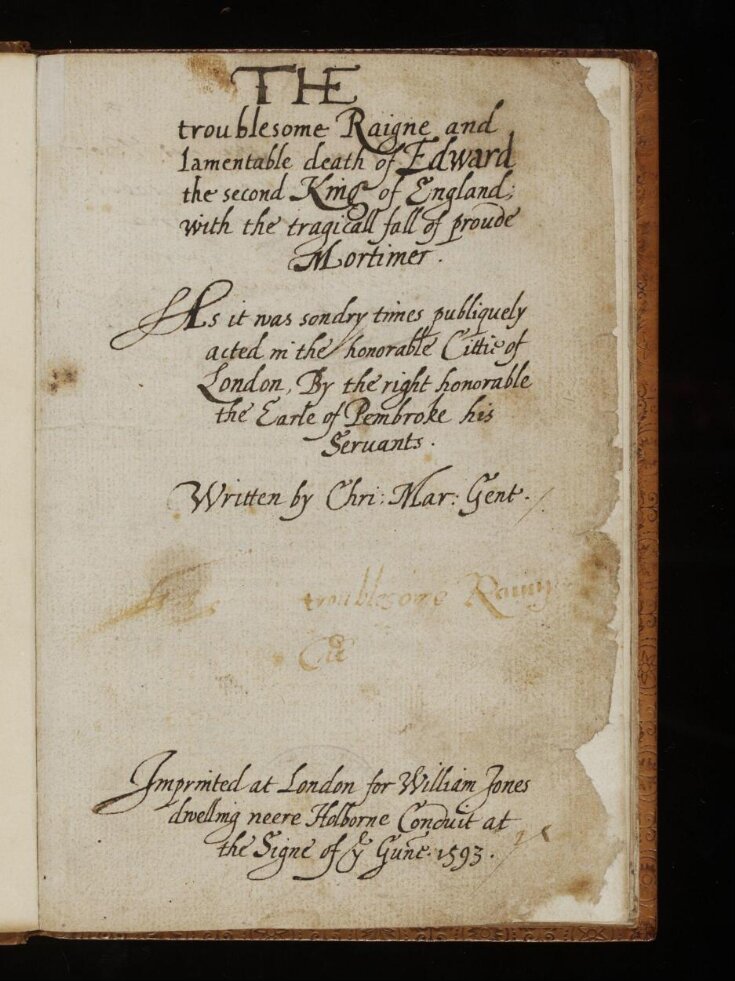 THE
troublesome Raigne and
lamentable death of Edward
the second King of England;
with the tragicall fall of proude
Mortimer.
As it was sondry times publiquely
acted in the honorable Cittie of
London, By the right honorable
the Earle of Pembroke his
Servants.
Written by Chri: Mar: Gent.
troublesome
Imprinted at London for William Jones
dwelling neere Holborne Conduit at
the Signe of yͤ Gune. 1593.